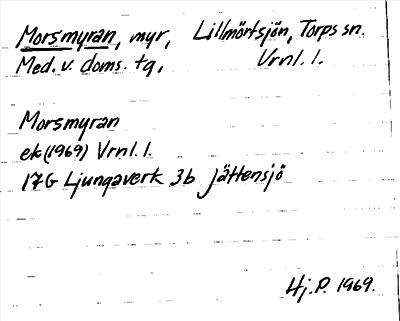 Morsmyran, myr, Lillmörtsjön, Torps sn.
Med. v. doms. tg, Vrnl. l.
Morsmyran
ek(1969) Vrnl. l.
17G Ljungaverk 3b Jättensjö
Hj.P. 1969.